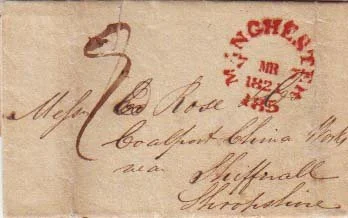 MANCHESTER
MR
182
185
9
Messrs Rose & Co
Coalport China Works
near Shiffnall
Shropshire